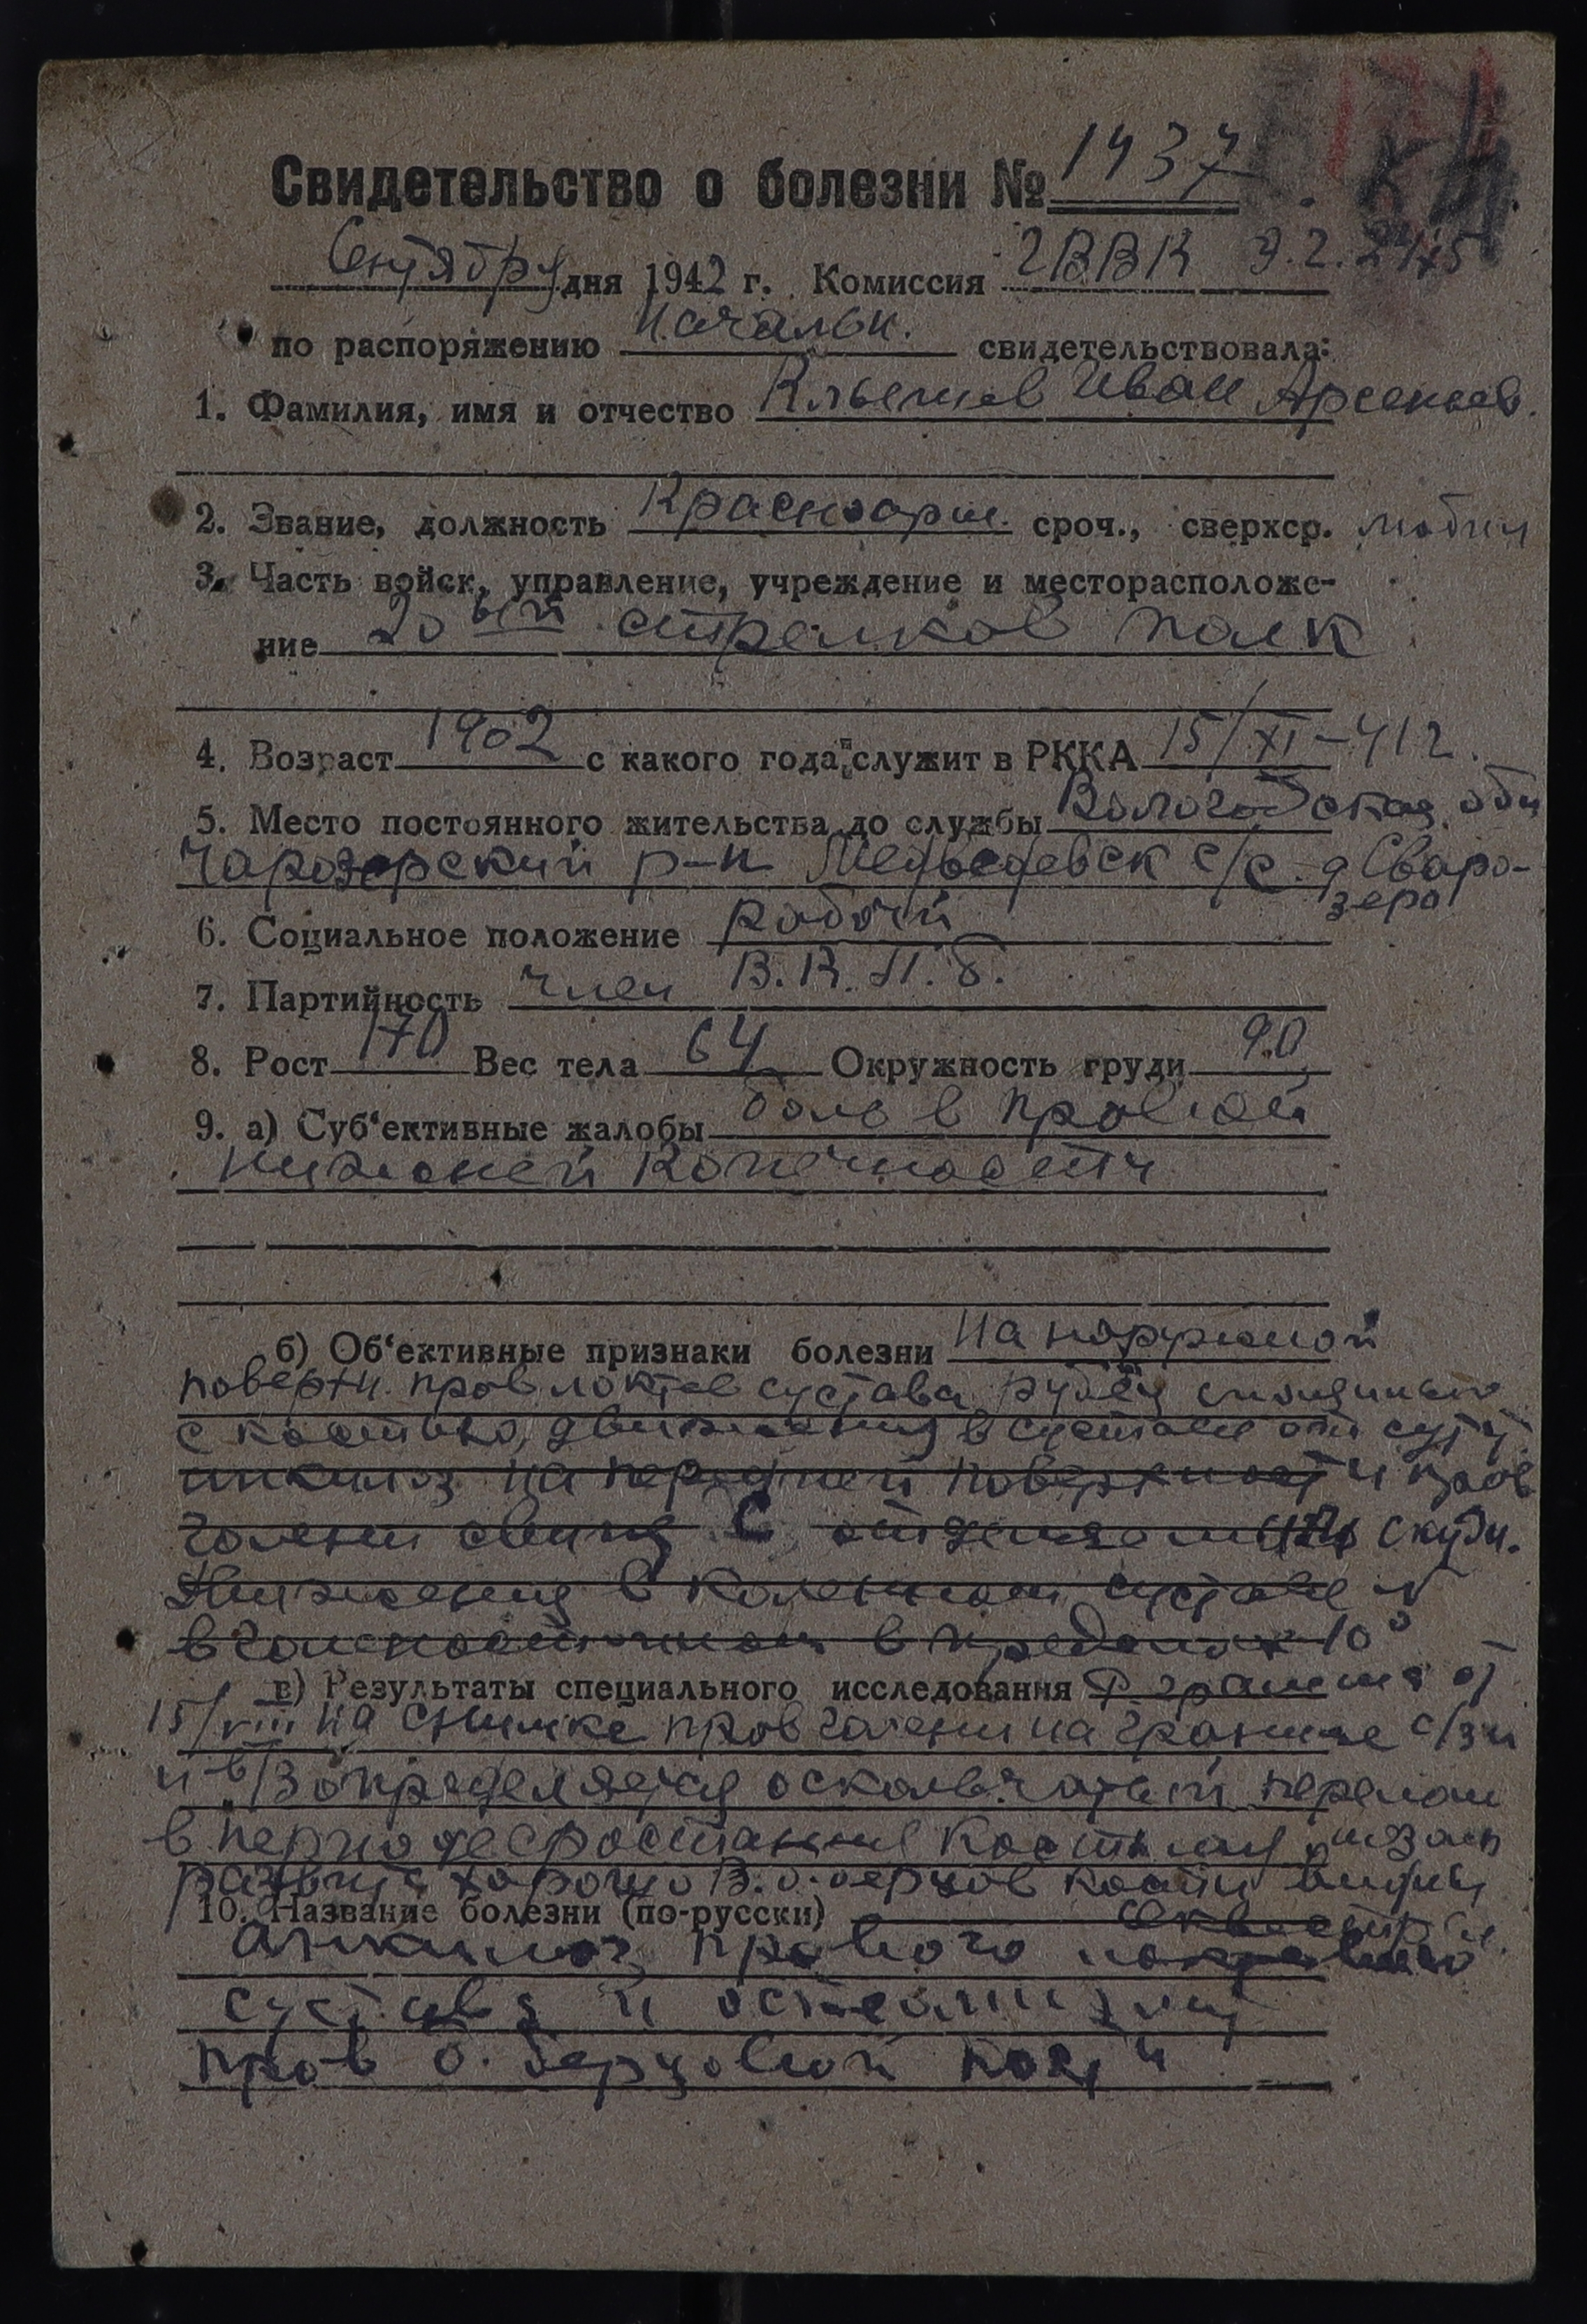 Свидетельство о болезни № 1437
Сентября дня 1942 г. Комиссия ГВВК Э.Г. 2475
по распоряжению начальн. свидетельствовала:
1. Фамилия, имя и отчество Иван Арсеньев.
2. Звание, должность Красноарм. сроч., сверхср.
3. Часть войск, управление, учреждение и месторасположе-
ние 20ый стрелков полк
4. Возраст 1902 с какого года служит в РККА 15/XI-41 г.
5. Место постоянного жительства до службы Вологодская обл
Чарозерский р-н с/с д Сваро-
зеро
6. Социальное положение рабочий
7. Партийность член В.К.П.б.
8. Рост 170 Вес тела 64 Окружность груди 90
9. а) Суб‘ективные жалобы боль в правой
нижней конечности
б) Об‘ективные признаки болезни На наружной
поверхн. прав локтев сустава рубец спаянный
с костью, движения в суставе отсутст
анкилоз на передней поверхности прав
голени свищ с отделяемым скудн.
Движения в коленном суставе
в голеностопном в пределах 10°
в) Результаты специального исследования Р грамма от
15/VIII на снимке прав голени на границе с/3 и
н в/3 определяется оскольчатый перелом
в периоде срастания Костная мозоль
развита хорошо В б. берцов кости видны
10. Название болезни (по-русски) секвестры.
Анкилоз правого локтевого
сустава и остеомиэлит
прав б. берцовой кости